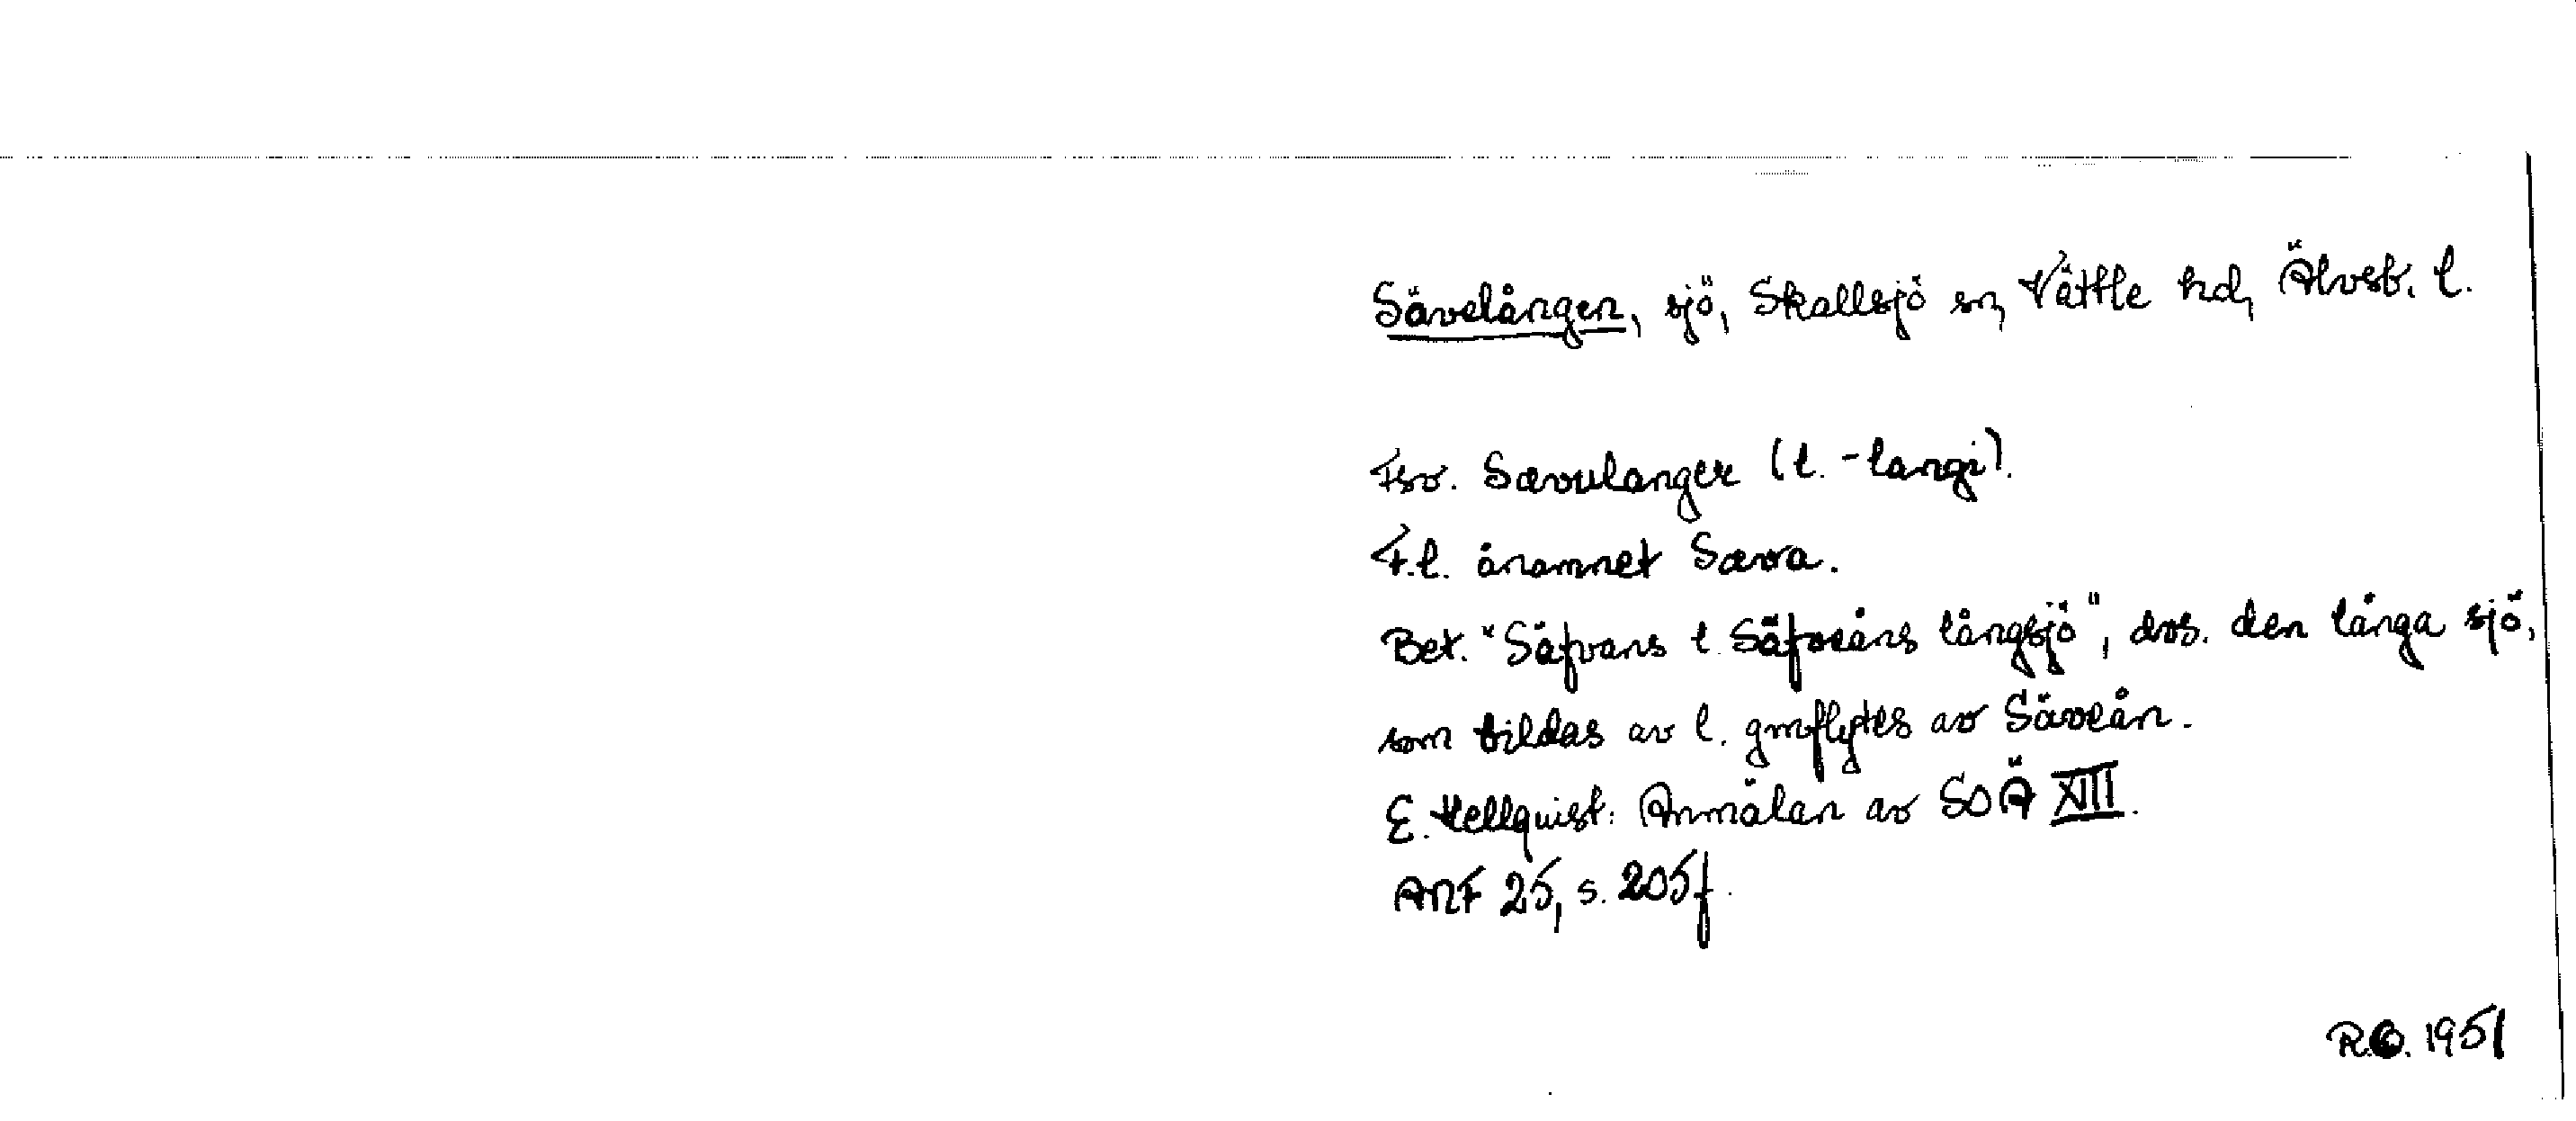 Sävelången, sjö, Skallsjö sn, Vättle hd, Älvsb. l.
Fsv. Sævulanger (l. -langi).
F.l. ånamnet Sæva.
Bet. "Säfvans l. Säfveåns långsjö", dvs. den långa sjö,
som bildas av l. gmflytes av Säveån.
E. Hellquist: Anmälan av SOÄ XIII.
ANF 25, s. 205f.
1951